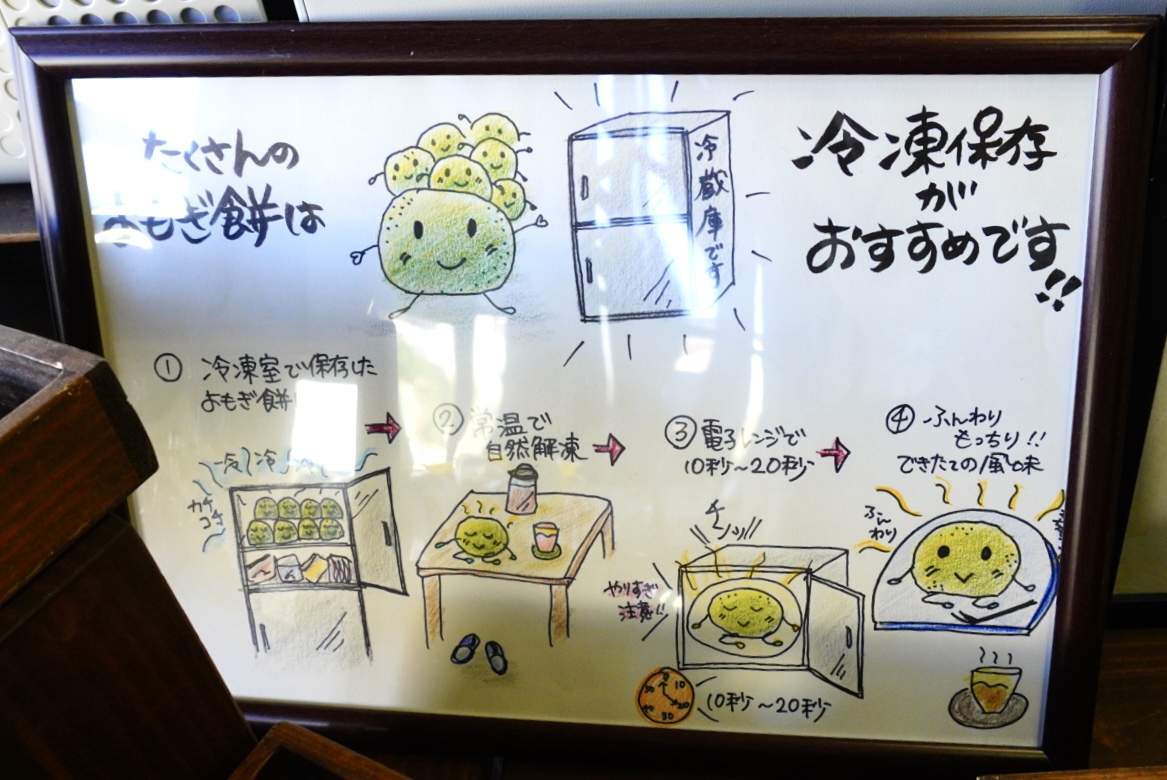 たくさんの
よもぎ餅は
冷蔵庫です
冷凍保存
が
おすすめです!!
① 冷凍室で保存した
よもぎ餅
カチ
コチ
② 常温で
自然解凍
③ 電子レンジで
10秒〜20秒
チンッ!!
やりすぎ
注意!!
10秒〜20秒
④ ふんわり
もっちり!!
できたての風味
ふん
わり